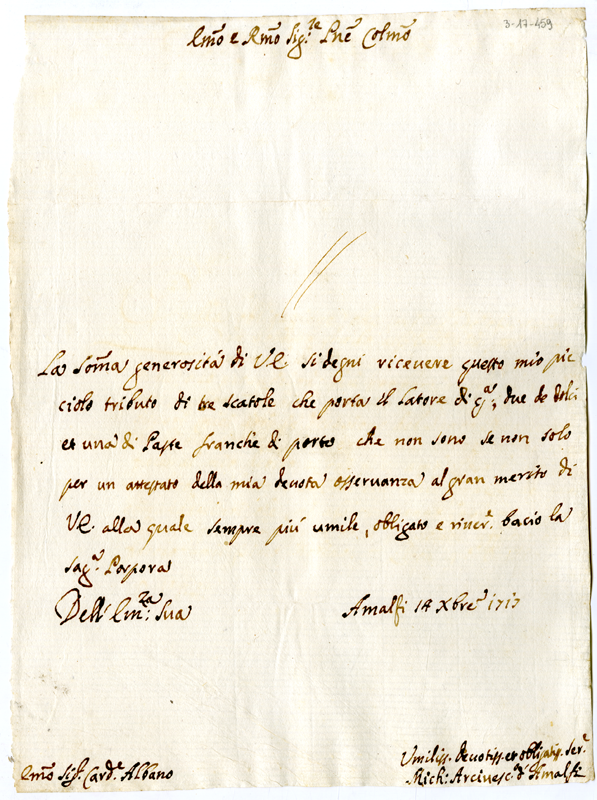 3-17-459
Em͠o e Rm͠o Sig.re Pn͠e Colm͠o
La Som͠a generosità di V.E. si degni ricevere questo mio pic
ciolo tributo di tre scatole che porta il Latore di q.a, due de dolci
et una di Paste franche di porto che non sono se non solo
per un attestato della mia devota osservanza al gran merito di
V.E. alla quale sempre più umile, obligato e river.e bacio la
sag.a Porpora
Dell' Em.za Sua
Amalfi 14 Xbre 1717
Em͠o Sig. Card.e Albano
Umiliss. devotiss. et obligatiss. ser.e
Mich. Arcivesc.o d'Amalfi